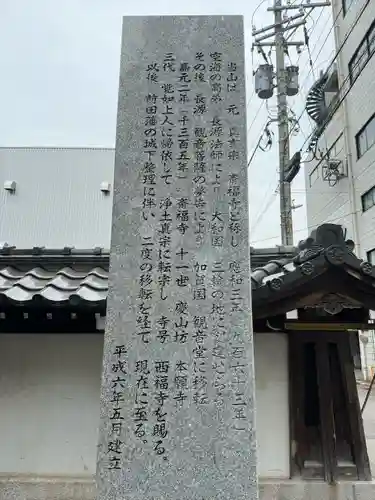 当山は 元 真言宗 斎福寺と称し 応和三年(九百六十三年)
空海の高弟 長源法師により 大和国 三輪の地に
その後 長源 観音菩薩の夢告により 加賀国 観音堂に移転
嘉元二年(千三百五年) 斎福寺 十一世 慶山坊 本願寺
三代 覚如上人に帰依して 浄土真宗に転宗し 寺号 西福寺を賜る。
以後 前田藩の城下整理に伴い 二度の移転を経て 現在に至る。
平成六年五月建立